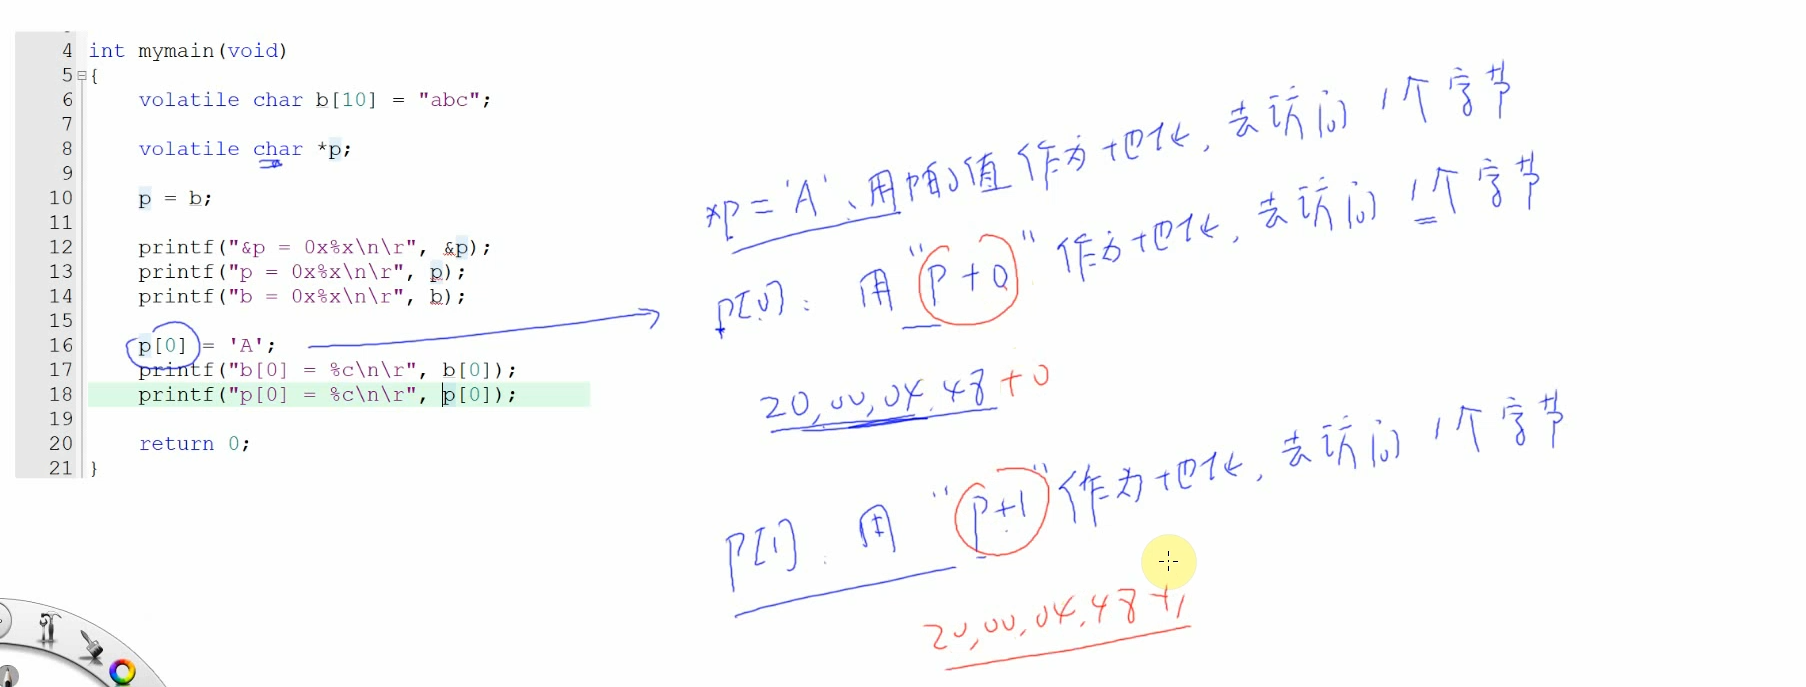 4 int mymain(void)
5 {
6 volatile char b[10] = "abc";
7
8 volatile char *p;
9
10 p = b;
11
12 printf("&p = 0x%x\n\r", &p);
13 printf("p = 0x%x\n\r", p);
14 printf("b = 0x%x\n\r", b);
15
16 p[0] = 'A';
17 printf("b[0] = %c\n\r", b[0]);
18 printf("p[0] = %c\n\r", p[0]);
19
20 return 0;
21 }
*p = 'A'、用p的值作为地址,去访问1个字节
p[0]: 用"p+0"作为地址,去访问1个字节
20,00,04,48+0
p[1]: 用"p+1"作为地址,去访问1个字节
20,00,04,48+1